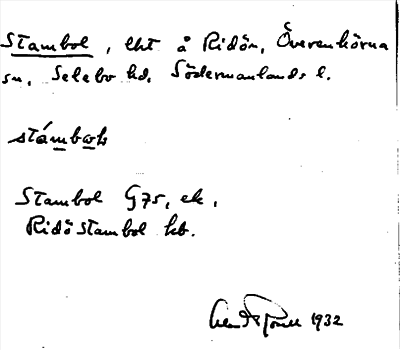 Stambol, lht å Ridön, Överenhörna
sn, Selebo hd. Södermanlands l.
Stambol G75, ek,
Ridö Stambol kb.
1932